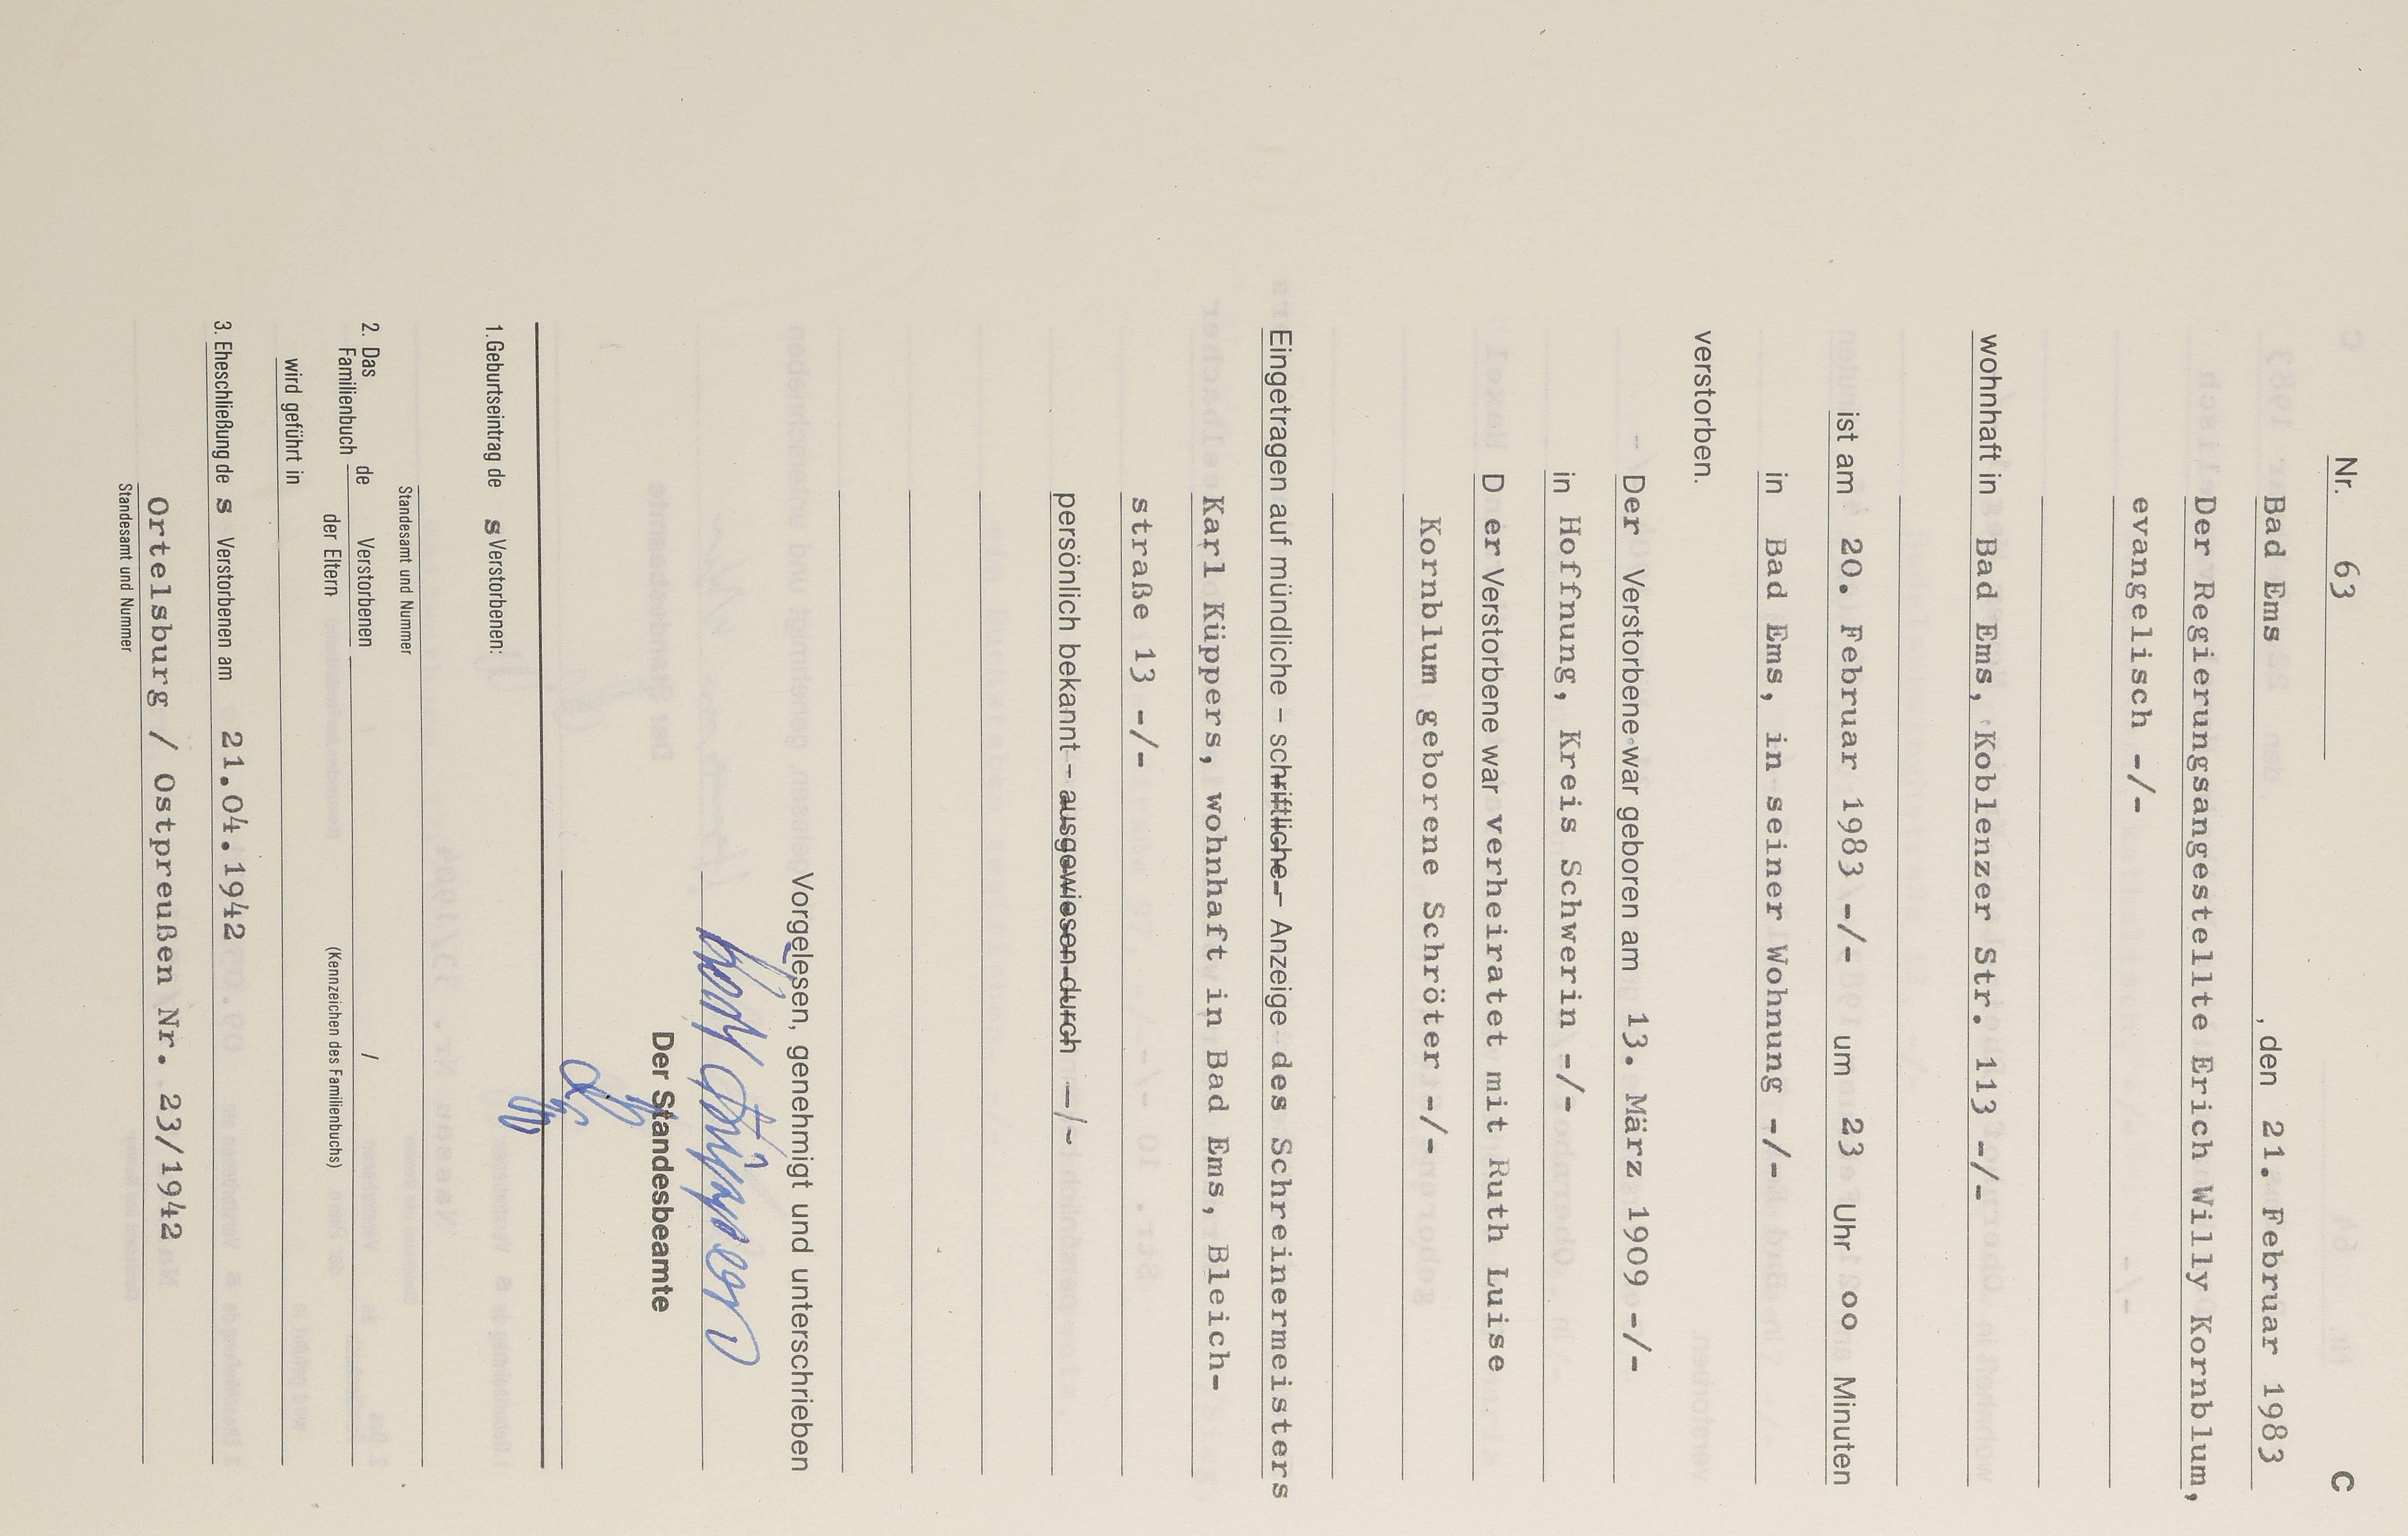 Nr. 63 C
Bad Ems, den 21. Februar 1983
Der Regierungsangestellte Erich Willy Kornblum,
evangelisch -/-
wohnhaft in Bad Ems, Koblenzer Str. 113 -/-
ist am 20. Februar 1983 -/- um 23 Uhr 00 Minuten
in Bad Ems, in seiner Wohnung -/-
verstorben.
Der Verstorbene war geboren am 13. März 1909 -/-
in Hoffnung, Kreis Schwerin -/-
D er Verstorbene war verheiratet mit Ruth Luise
Kornblum geborene Schröter -/-
Eingetragen auf mündliche – schriftliche – Anzeige des Schreinermeisters
Karl Küppers, wohnhaft in Bad Ems, Bleich-
straße 13 -/-
persönlich bekannt – ausgewiesen durch -/-
Vorgelesen, genehmigt und unterschrieben
Karl Küppers
Der Standesbeamte
1. Geburtseintrag de s Verstorbenen:
Standesamt und Nummer
2. Das Familienbuch de Verstorbenen /
der Eltern (Kennzeichen des Familienbuchs)
wird geführt in
3. Eheschließung de s Verstorbenen am 21.04.1942
Ortelsburg / Ostpreußen Nr. 23/1942
Standesamt und Nummer